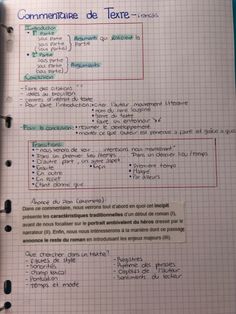 Commentaire de Texte - Français
Introduction
1° Partie
sous partie
sous partie
sous partie
Arguments qui
la
Partie
2° Partie
sous partie
sous partie
Arguments
Conclusion
- Faire des citations " "
- idées au brouillon
- genres et intérêt du texte
- Pour faire l'introduction: citer l'auteur, mouvement littéraire
nom du livre
titre de
faire un entonnoir
- Pour la conclusion: résumer le développement
montrer ce que l'auteur est parvenue à partir et grâce à quoi
Transitions:
"nous venons de voir ... intéressons nous maintenant"
Dans un premier lieu / temps ... Dans un dernier lieu / temps
D'autre part, un autre aspect, Premièrement
Ensuite
Enfin
Malgré
En outre
Par ailleurs
En effet
Etant donné que
Annonce du Plan (exemple):
Dans ce commentaire, nous verrons tout d'abord en quoi cet incipit
présente les caractéristiques traditionnelles d'un début de roman (I),
avant de nous focaliser sur le portrait ambivalent du héros dressé par le
narrateur (II). Enfin, nous nous intéresserons à la manière dont ce passage
annonce le reste du roman en introduisant les enjeux majeurs (III).
Que chercher dans un texte?
- figures de style
- Registres
- Sonorités
- Rythme des phrases
- Champ lexical
- Opinions de l'auteur
- Ponctuation
- Sentiments du lecteur
- Temps et mode